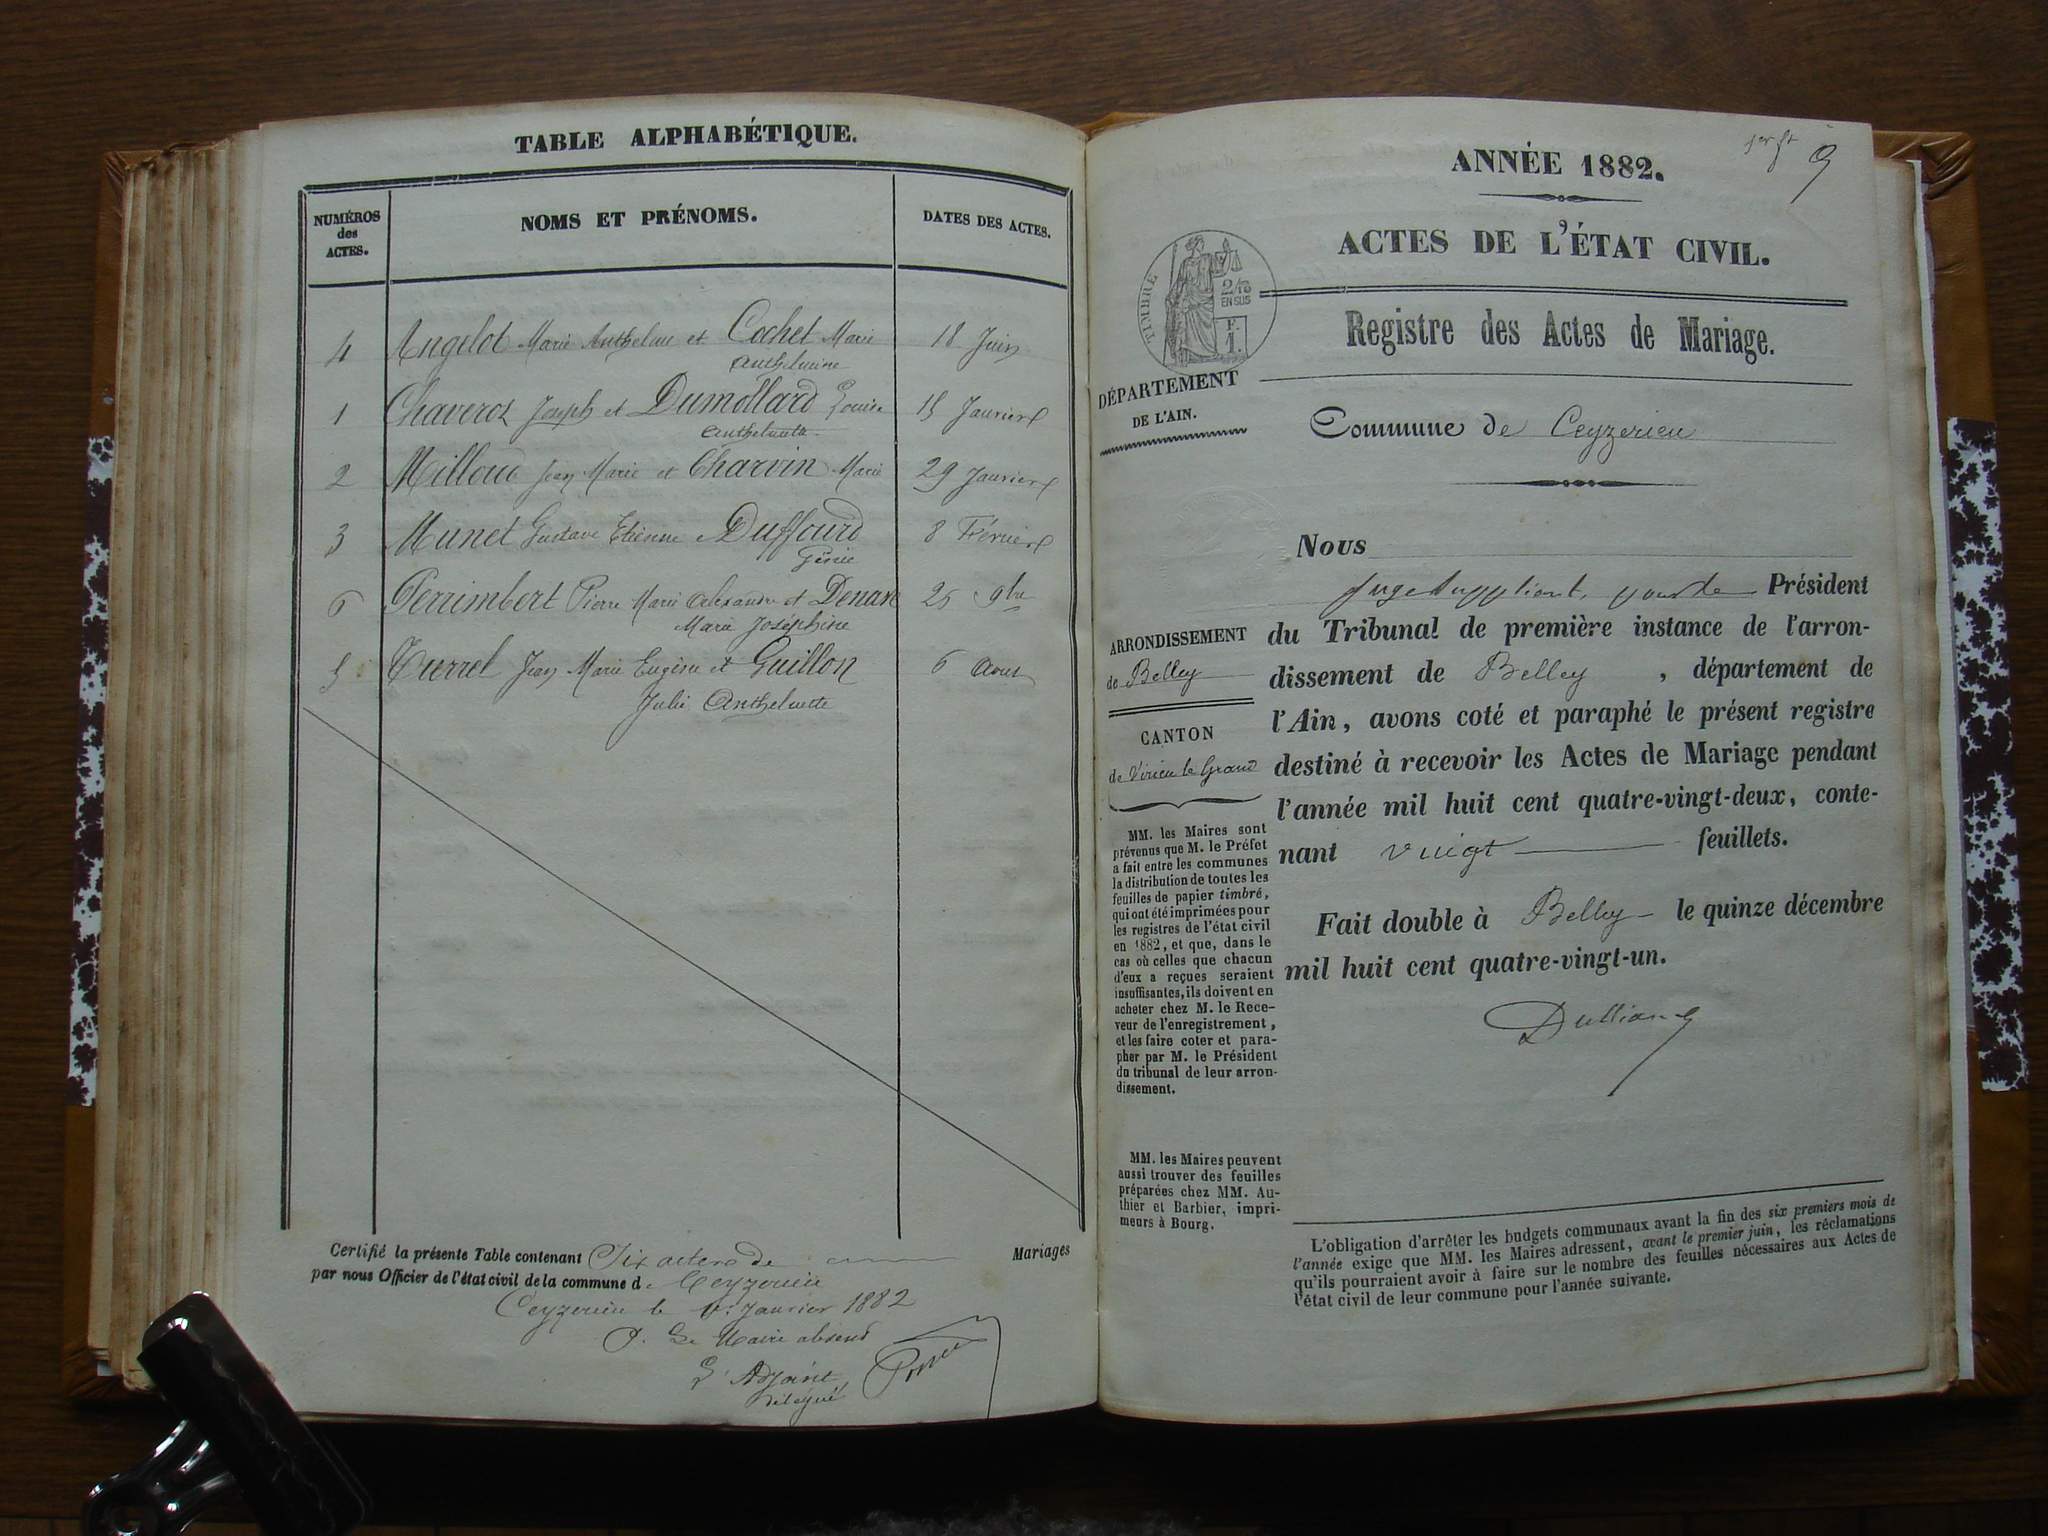 TABLE ALPHABÉTIQUE.
NUMÉROS
des
ACTES.
NOMS ET PRÉNOMS.
DATES DES ACTES.
4 Angelot Marie Anthelme et Cochet Marie 18 Juin
Anthelmine
1 Chaveroz Joseph et Dumollard Louise 15 Janvier
Anthelmette
2 Milloud Jean Marie et Charvin Marie 29 Janvier
3 Munet Gustave Etienne Duffourd 8 Février
6 Perrimbert Pierre Marie Alexandre et Denare 25 9bre
Marie Joséphine
5 Turrel Jean Marie Eugène et Guillon 6 Aout
Julie Anthelmette
Certifié la présente Table contenant Six actes de Mariages
par nous Officier de l'état civil de la commune de Ceyzerieu
Ceyzerieu le 1er Janvier 1882
P. Le Maire absent
L'Adjoint
délégué
1er ft
ANNÉE 1882.
ACTES DE L'ÉTAT CIVIL.
TIMBRE
2/10
EN SUS
F.
1.
Registre des Actes de Mariage.
DÉPARTEMENT
DE L'AIN.
Commune de Ceyzerieu
Nous
Juge suppléant, pour le Président
du Tribunal de première instance de l'arron-
dissement de Belley, département de
l'Ain, avons coté et paraphé le présent registre
destiné à recevoir les Actes de Mariage pendant
l'année mil huit cent quatre-vingt-deux, conte-
nant vingt feuillets.
Fait double à Belley le quinze décembre
mil huit cent quatre-vingt-un.
Dullian
ARRONDISSEMENT
de Belley
CANTON
de Virieu le Grand
MM. les Maires sont
prévenus que M. le Préfet
a fait entre les communes
la distribution de toutes les
feuilles de papier timbré,
qui ont été imprimées pour
les registres de l'état civil
en 1882, et que, dans le
cas où celles que chacun
d'eux a reçues seraient
insuffisantes, ils doivent en
acheter chez M. le Rece-
veur de l'enregistrement,
et les faire coter et para-
pher par M. le Président
du tribunal de leur arron-
dissement.
MM. les Maires peuvent
aussi trouver des feuilles
préparées chez MM. Au-
thier et Barbier, impri-
meurs à Bourg.
L'obligation d'arrêter les budgets communaux avant la fin des six premiers mois de
l'année exige que MM. les Maires adressent, avant le premier juin, les réclamations
qu'ils pourraient avoir à faire sur le nombre des feuilles nécessaires aux Actes de
l'état civil de leur commune pour l'année suivante.